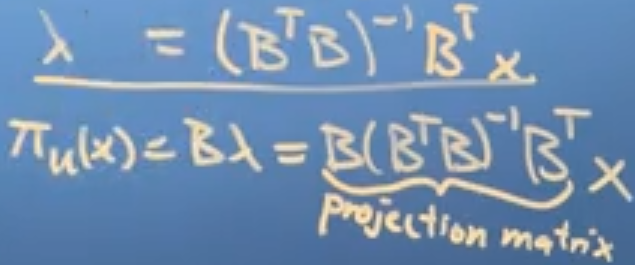 λ = (BᵀB)⁻¹Bᵀx
πᵤ(x) = Bλ = B(BᵀB)⁻¹Bᵀx
projection matrix